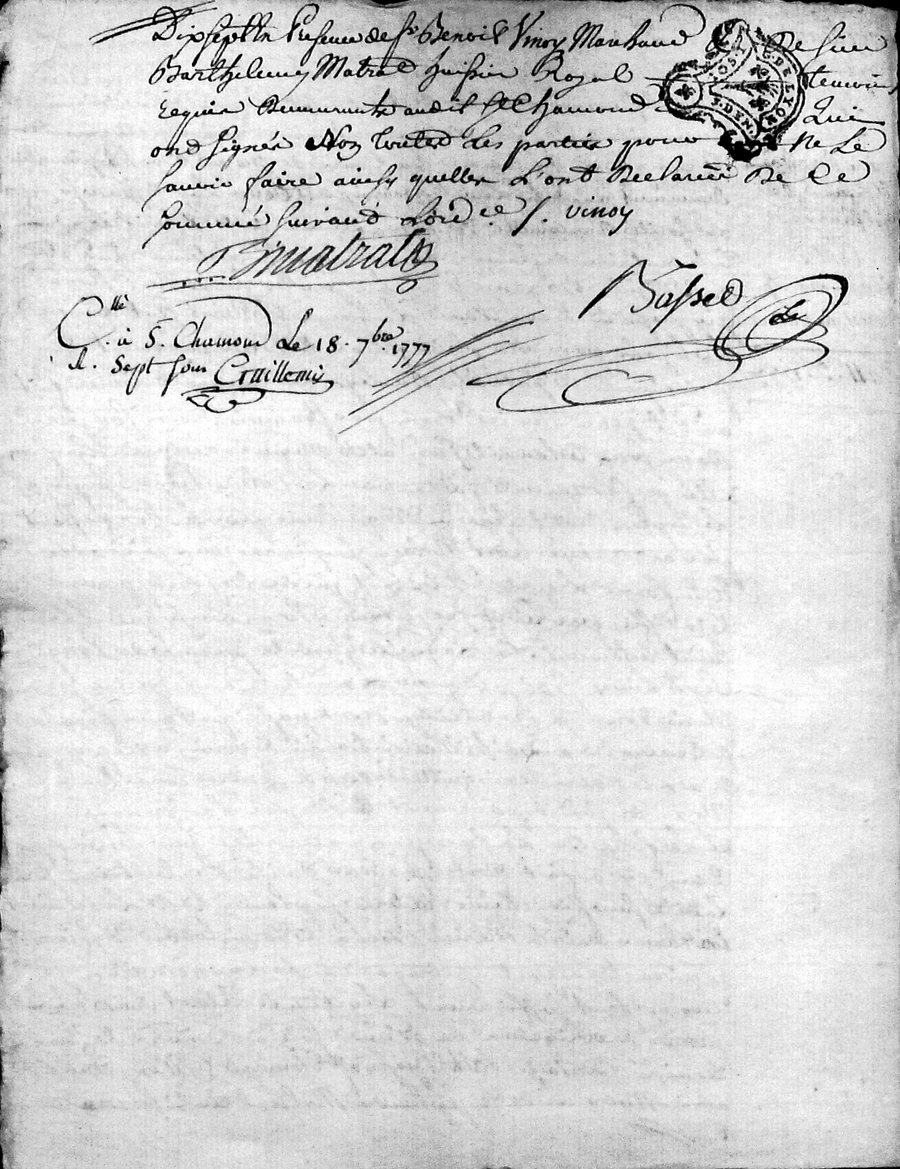 Dixsept En Présence de Sr Benoit Vinoy Marchand & De Sieur
Barthelemy Matrat huissier Royal temoins
requis Demeurants audit St Chamond Qui
ont signés Non toutes les parties pour Ne Le
savoir faire ainsy quelles L'ont Declaré De Ce
sommé suivant Lord.ce f. vinoy
B matrat
Basset
C.llé à S. Chamond Le 18. 7bre. 1777
R. sept sous
G. DE LYON